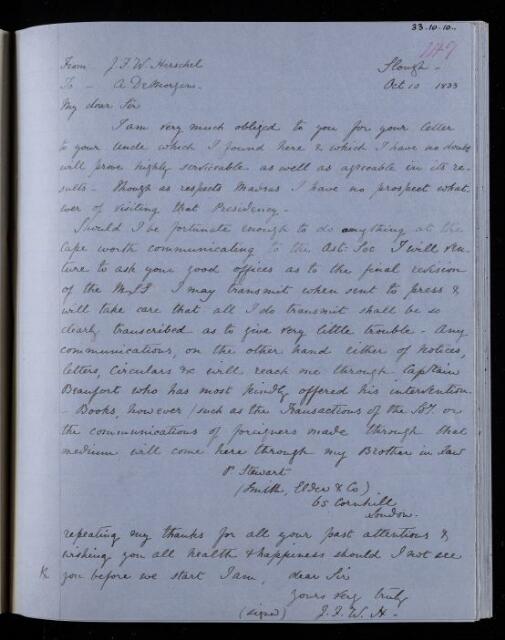 33.10.10.
149
From J.F.W. Herschel Slough -
To - A DeMorgan. Oct 10 1833
My dear Sir
I am very much obliged to you for your letter
to your Uncle which I found here & which I have no doubt
will prove highly serviceable as well as agreeable in its re-
sults - though as respects Madras I have no prospect what-
ever of visiting that Presidency -
Should I be fortunate enough to do anything at the
Cape worth communicating to the Ast. Soc I will ven-
ture to ask your good offices as to the final revision
of the M.S.S I may transmit when sent to press &
will take care that all I do transmit shall be so
clearly transcribed as to give very little trouble - Any
communications, on the other hand either of Notices,
letters, Circulars &c will reach me through Captain
Beaufort who has most kindly offered his intervention
- Books, however / such as the Transactions of the Soc. or
the communications of foreigners made through that
medium will come here through my Brother in law
P Stewart
(Smith, Elder & Co)
65 Cornhill
London.
repeating my thanks for all your past attentions &
wishing you all health & happiness should I not see
you before we start I am, dear Sir
yours very truly
(signed) J.F.W. H -